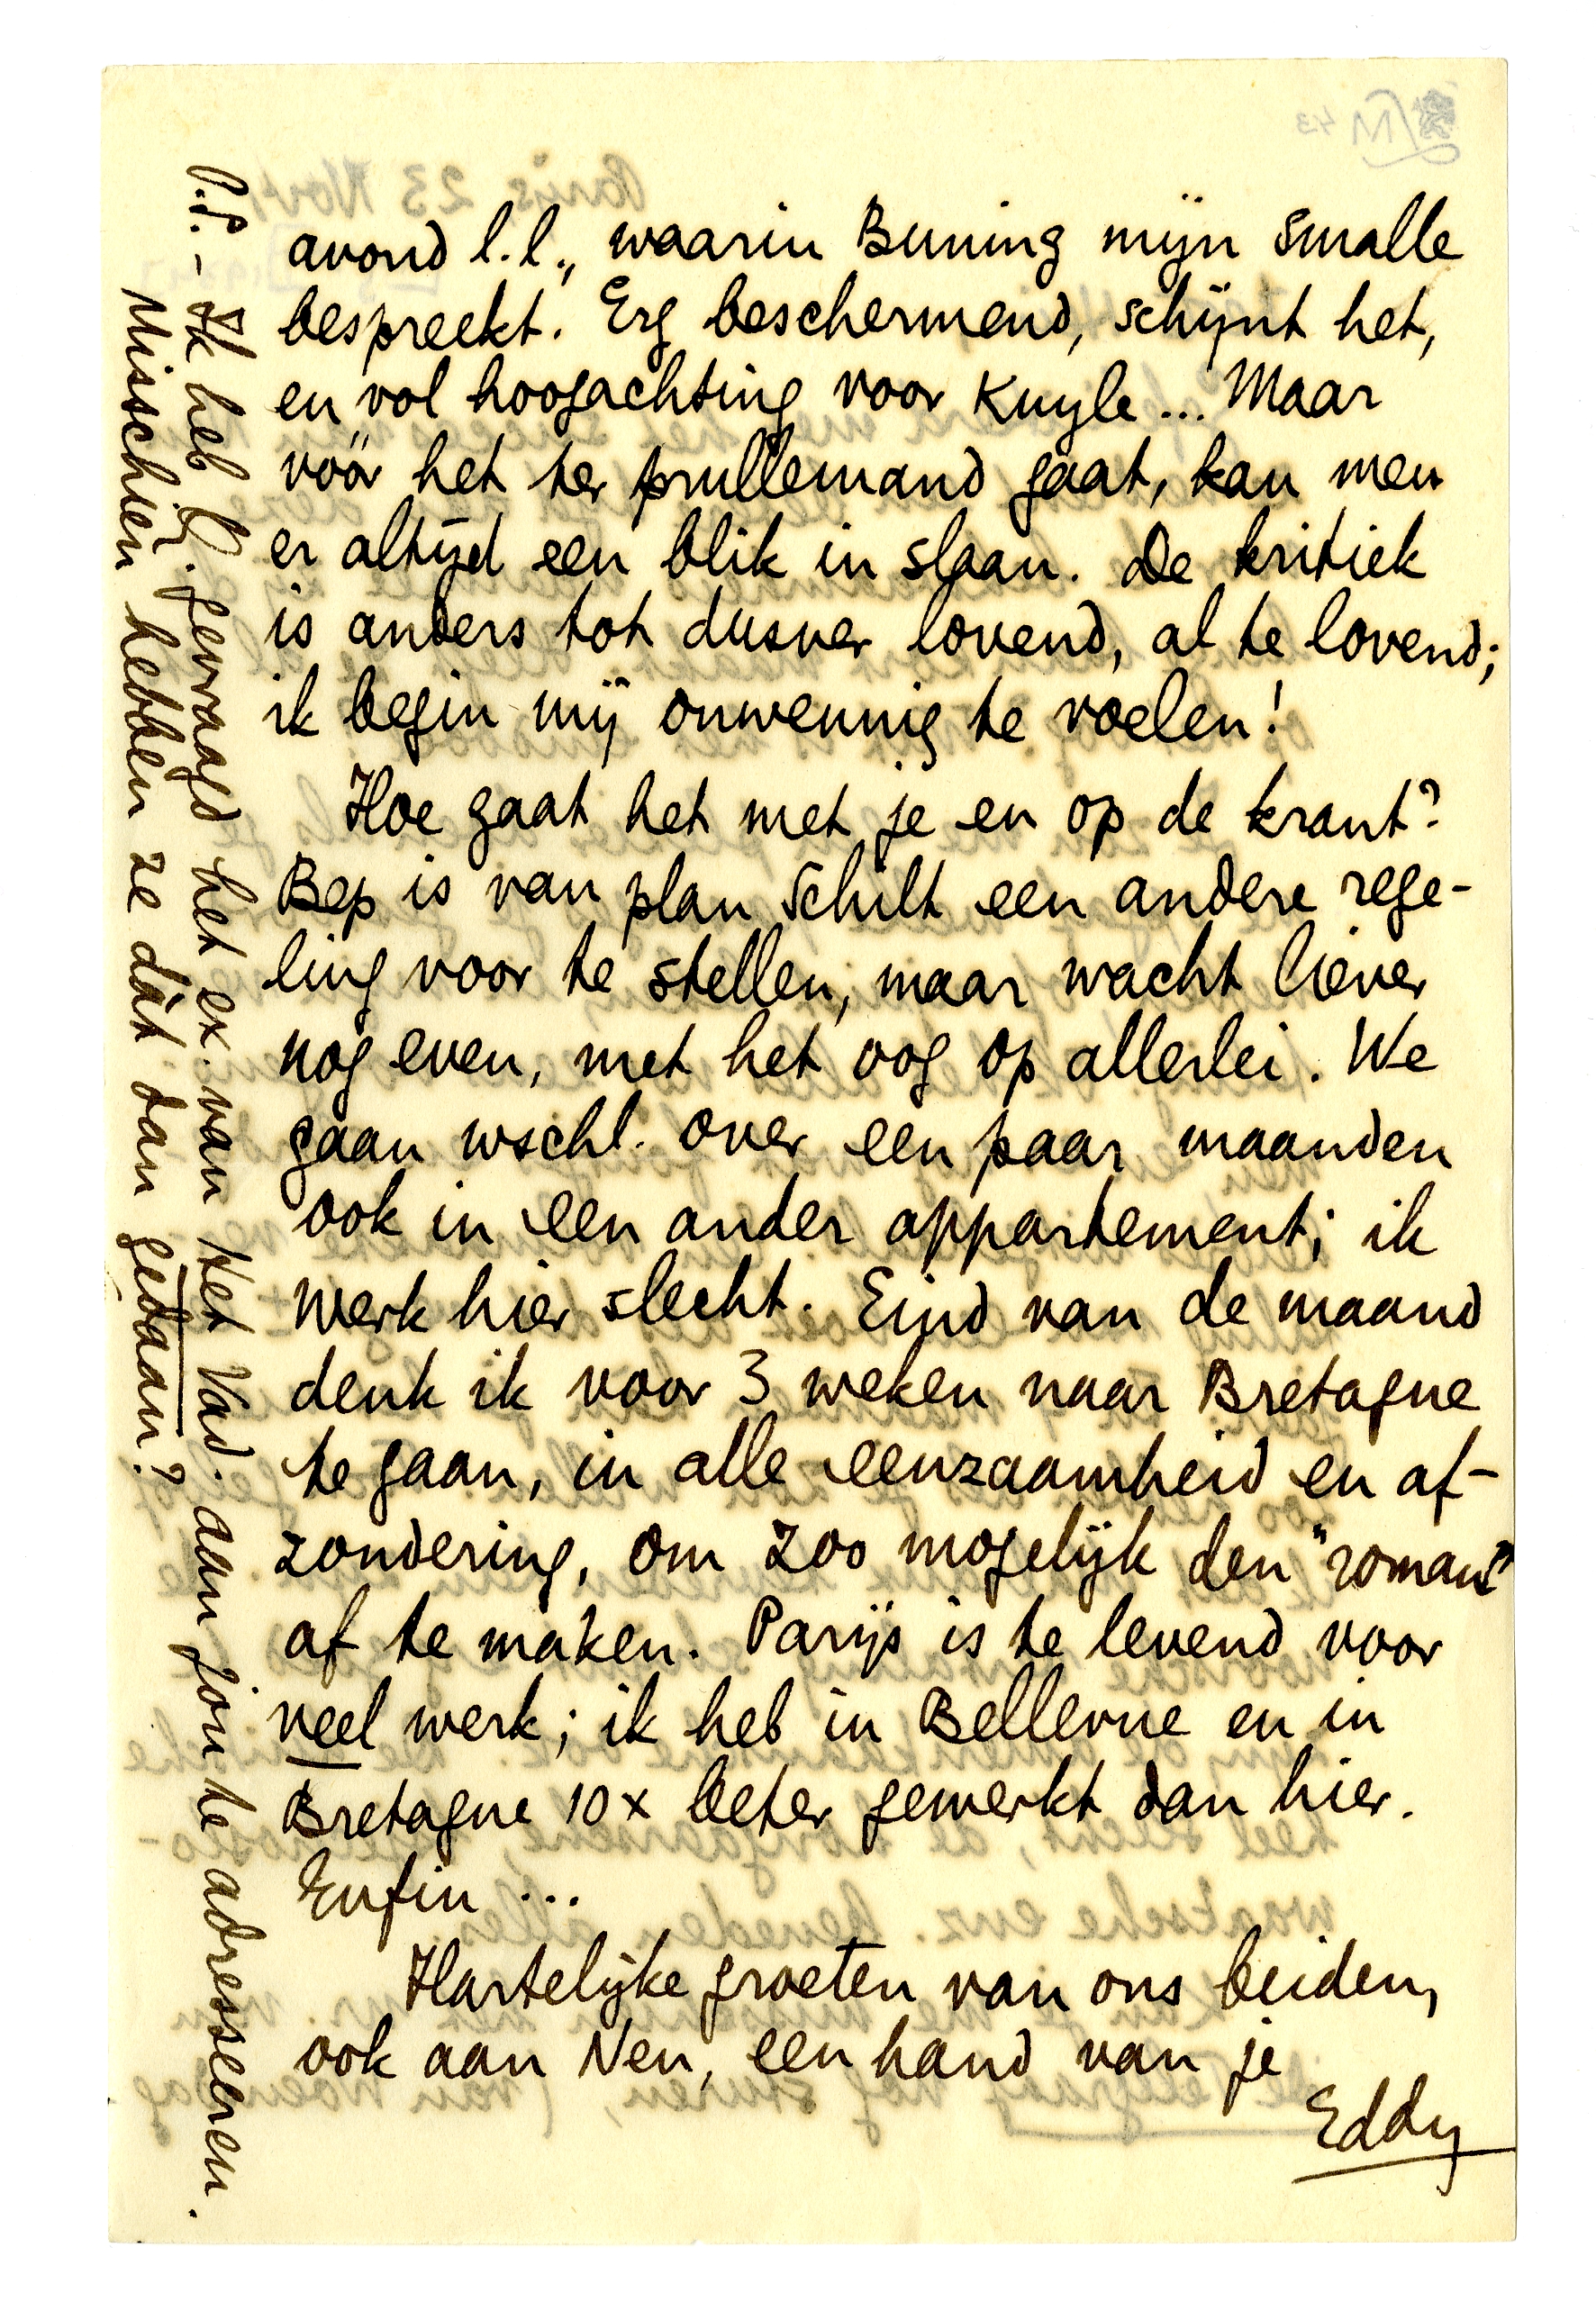 avond l.l., waarin Buning mijn Smalle
bespreekt. Erg beschermend, schijnt het,
en vol hoogachting voor Kuyle... Maar
vóór het ter prullemand gaat, kan men
er altijd een blik in slaan. De kritiek
is anders tot dusver lovend, al te lovend;
ik begin mij onwennig te voelen!
Hoe gaat het met je en op de krant?
Bep is van plan Schilt een andere rege-
ling voor te stellen, maar wacht liever
nog even, met het oog op allerlei. We
gaan wschl. over een paar maanden
ook in een ander appartement; ik
werk hier slecht. Eind van de maand
denk ik voor 3 weken naar Bretagne
te gaan, in alle eenzaamheid en af-
zondering, om zoo mogelijk den "roman"
af te maken. Parijs is te levend voor
veel werk; ik heb in Bellevue en in
Bretagne 10 x beter gewerkt dan hier.
Enfin ...
Hartelijke groeten van ons beiden,
ook aan Nen, een hand van je
Eddy
P.S. - Ik heb gevraagd het ex. van Het Vad. aan jou te adresseeren.
Misschien hebben ze dàt dan gedaan?
Parijs 23 Nov.